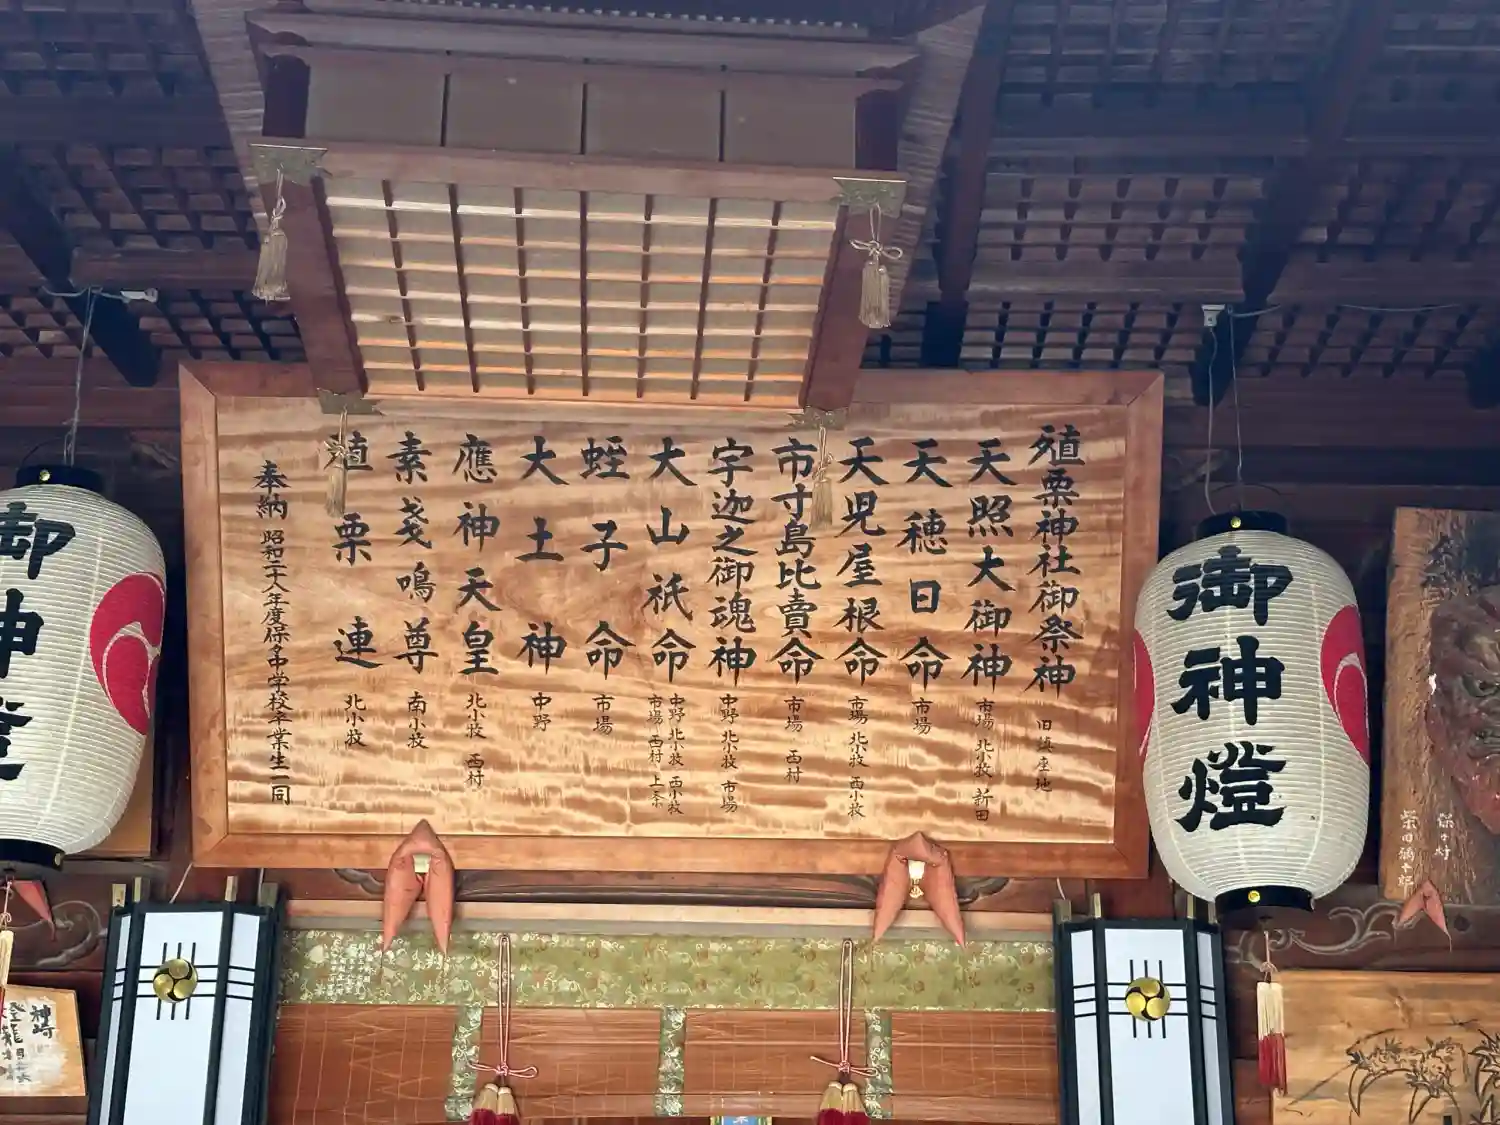 殖栗神社御祭神 旧鎮座地
天照大御神 市場 北小牧 新田
天穂日命 市場
天児屋根命 市場 北小牧 西小牧
市寸島比賣命 市場 西村
宇迦之御魂神 中野 北小牧 市場
大山祇命 中野 北小牧 西小牧
市場 西村 上条
蛭子命 市場
大土神 中野
應神天皇 北小牧 西村
素戔鳴尊 南小牧
殖栗連 北小牧
奉納 昭和二十八年度保々中学校卒業生一同
御神燈
御神燈
保々村
神崎